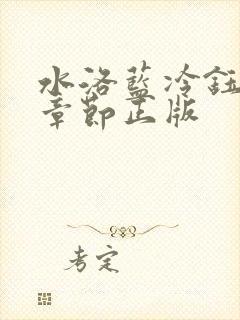 水洛蓝冷钰
章节正版
考定